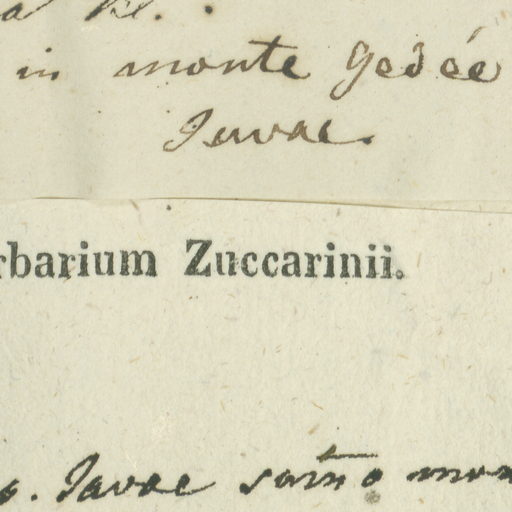 a Bl.
in monte Gedée
Javae.
rbarium Zuccarinii.
o. Javae